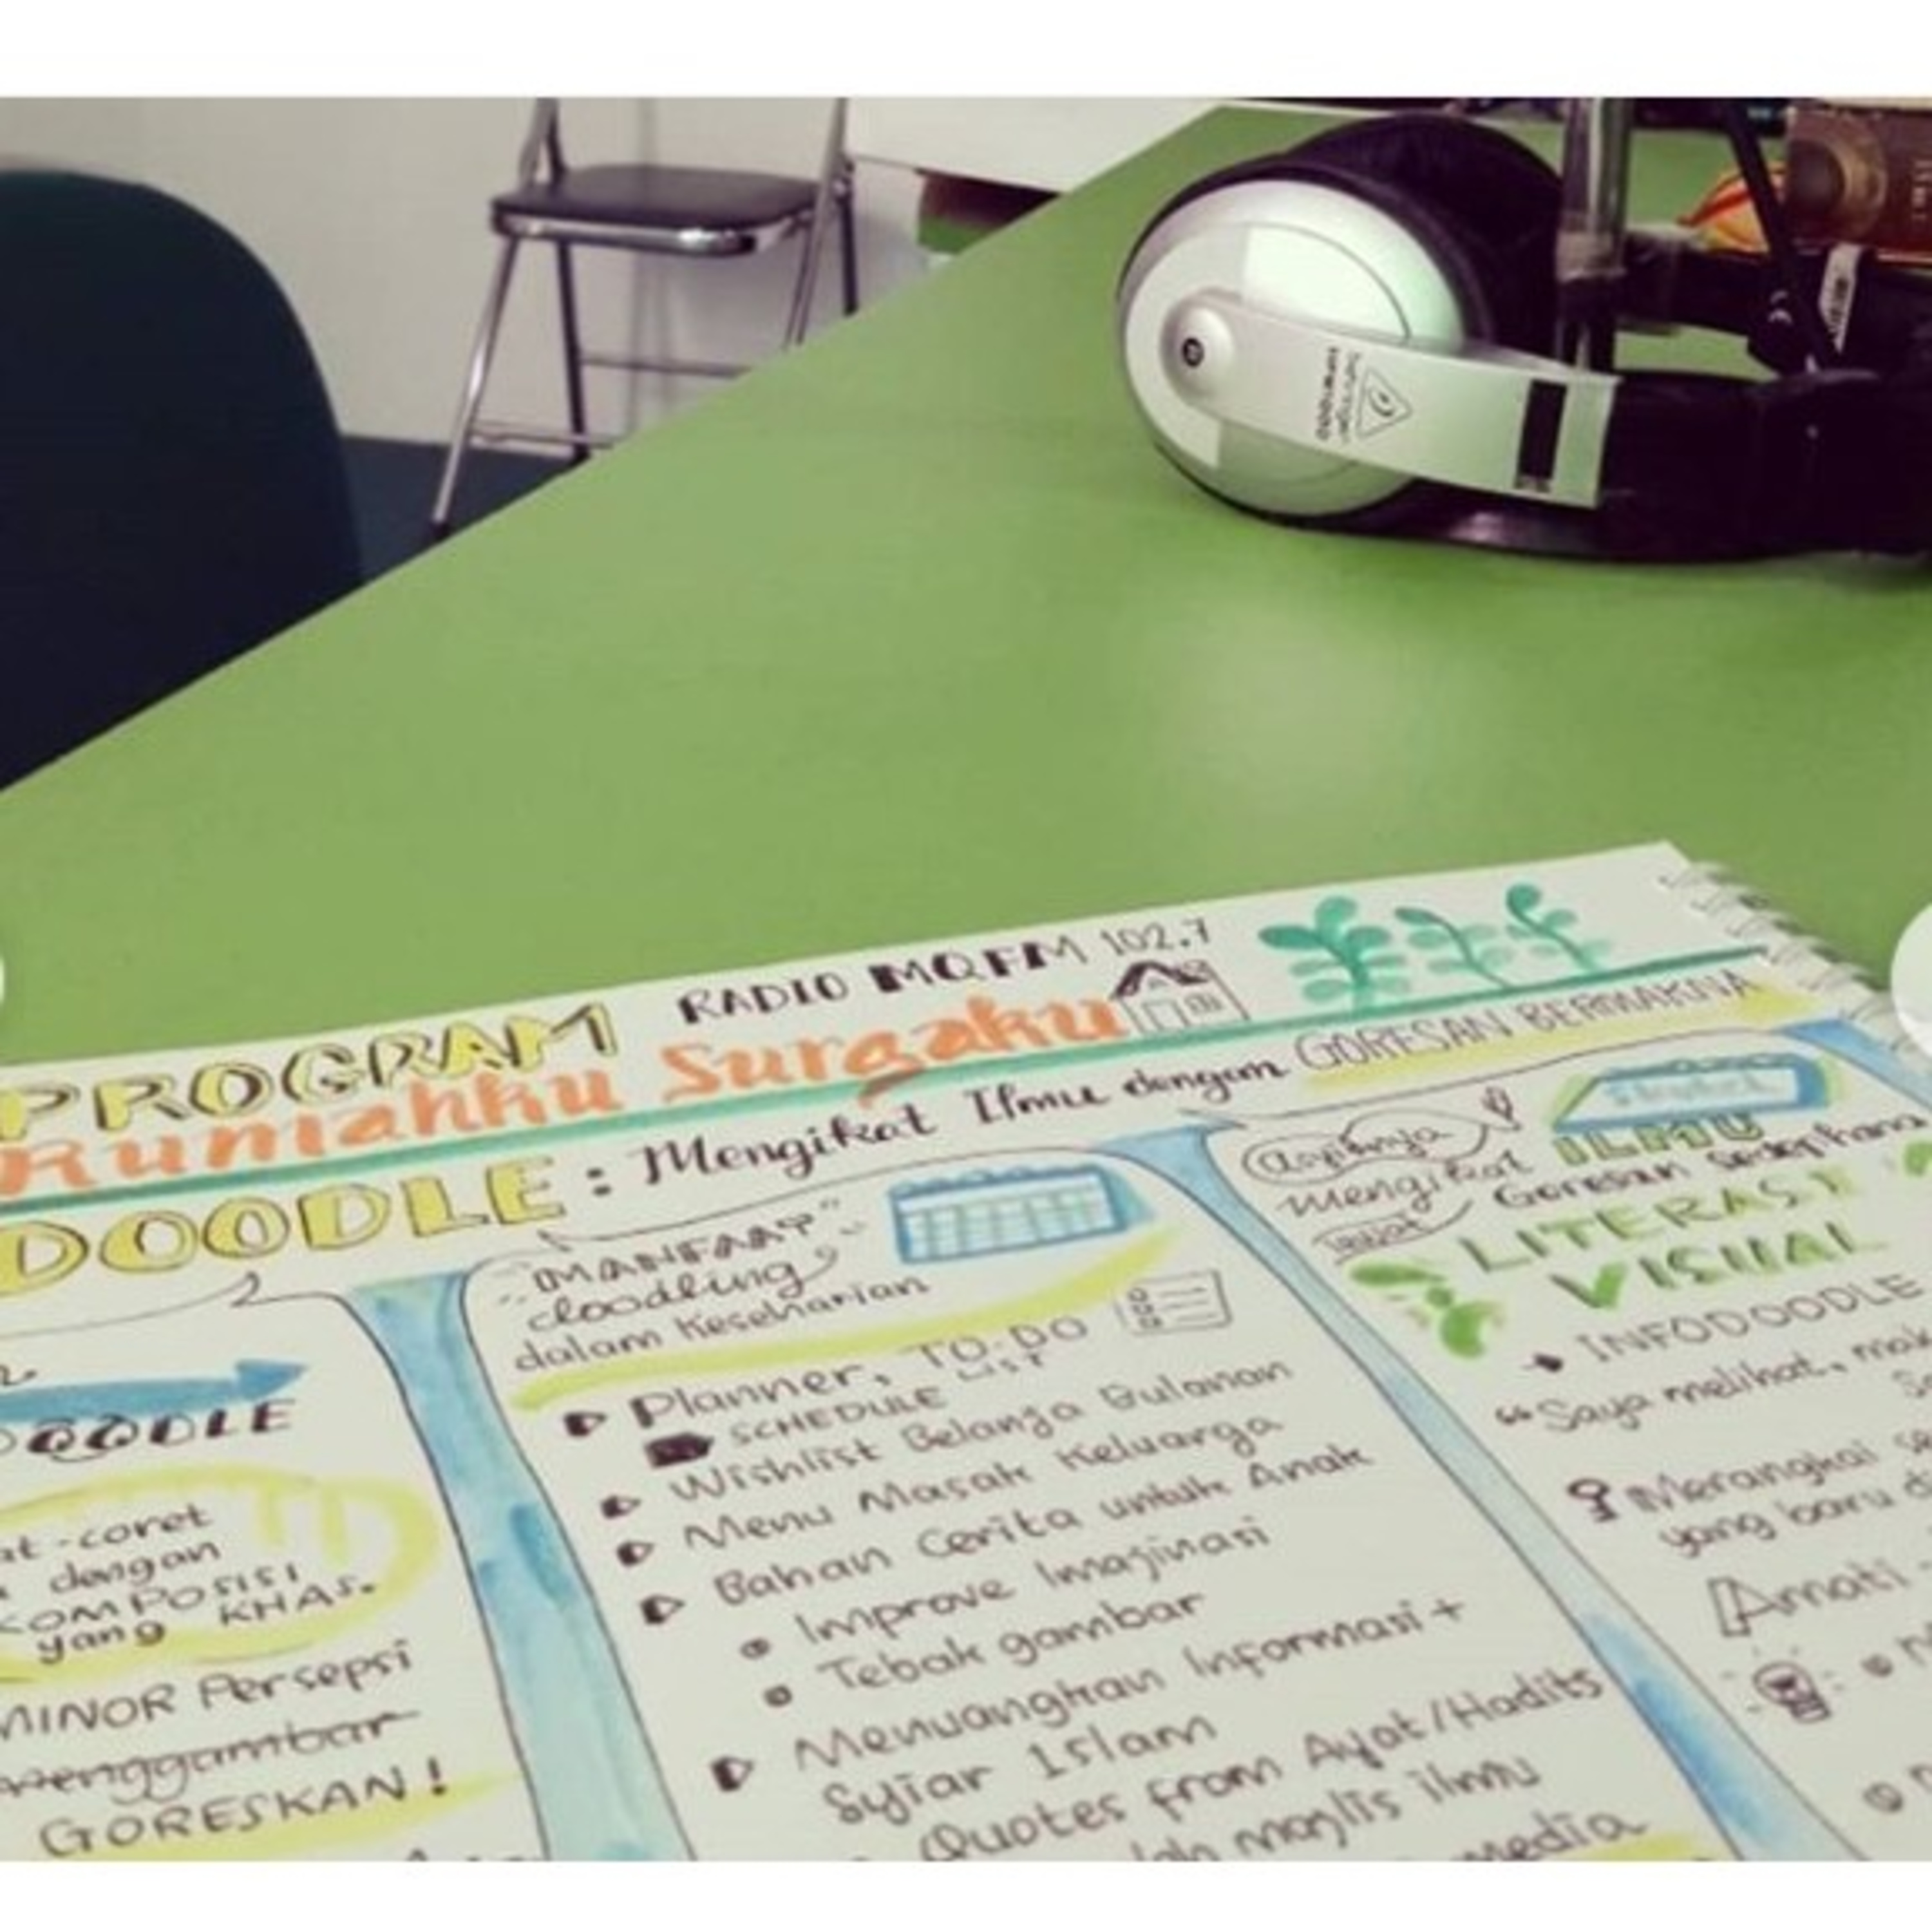 PROGRAM RADIO MQFM 102.7
Rumahku Surgaku
DOODLE : Mengikat Ilmu dengan GORESAN BERMAKNA
DOODLE
dengan
KOMPOSISI
yang KHAS.
MINOR Persepsi
menggambar
GORESKAN!
"MANFAAT"
doodling
dalam Keseharian
Planner, TO-DO
LIST
SCHEDULE
Wishlist Belanja Bulanan
Menu Masak Keluarga
Bahan Cerita untuk Anak
Improve Imajinasi
Tebak gambar
Menuangkan Informasi +
Syiar Islam
Quotes from Ayat/Hadits
majlis ilmu
media
Artinya
mengikat ILMU
lewat Goresan Sederhana
LITERASI
VISUAL
INFODOODLE
"Saya melihat,
Merangkai
yang baru
Amati